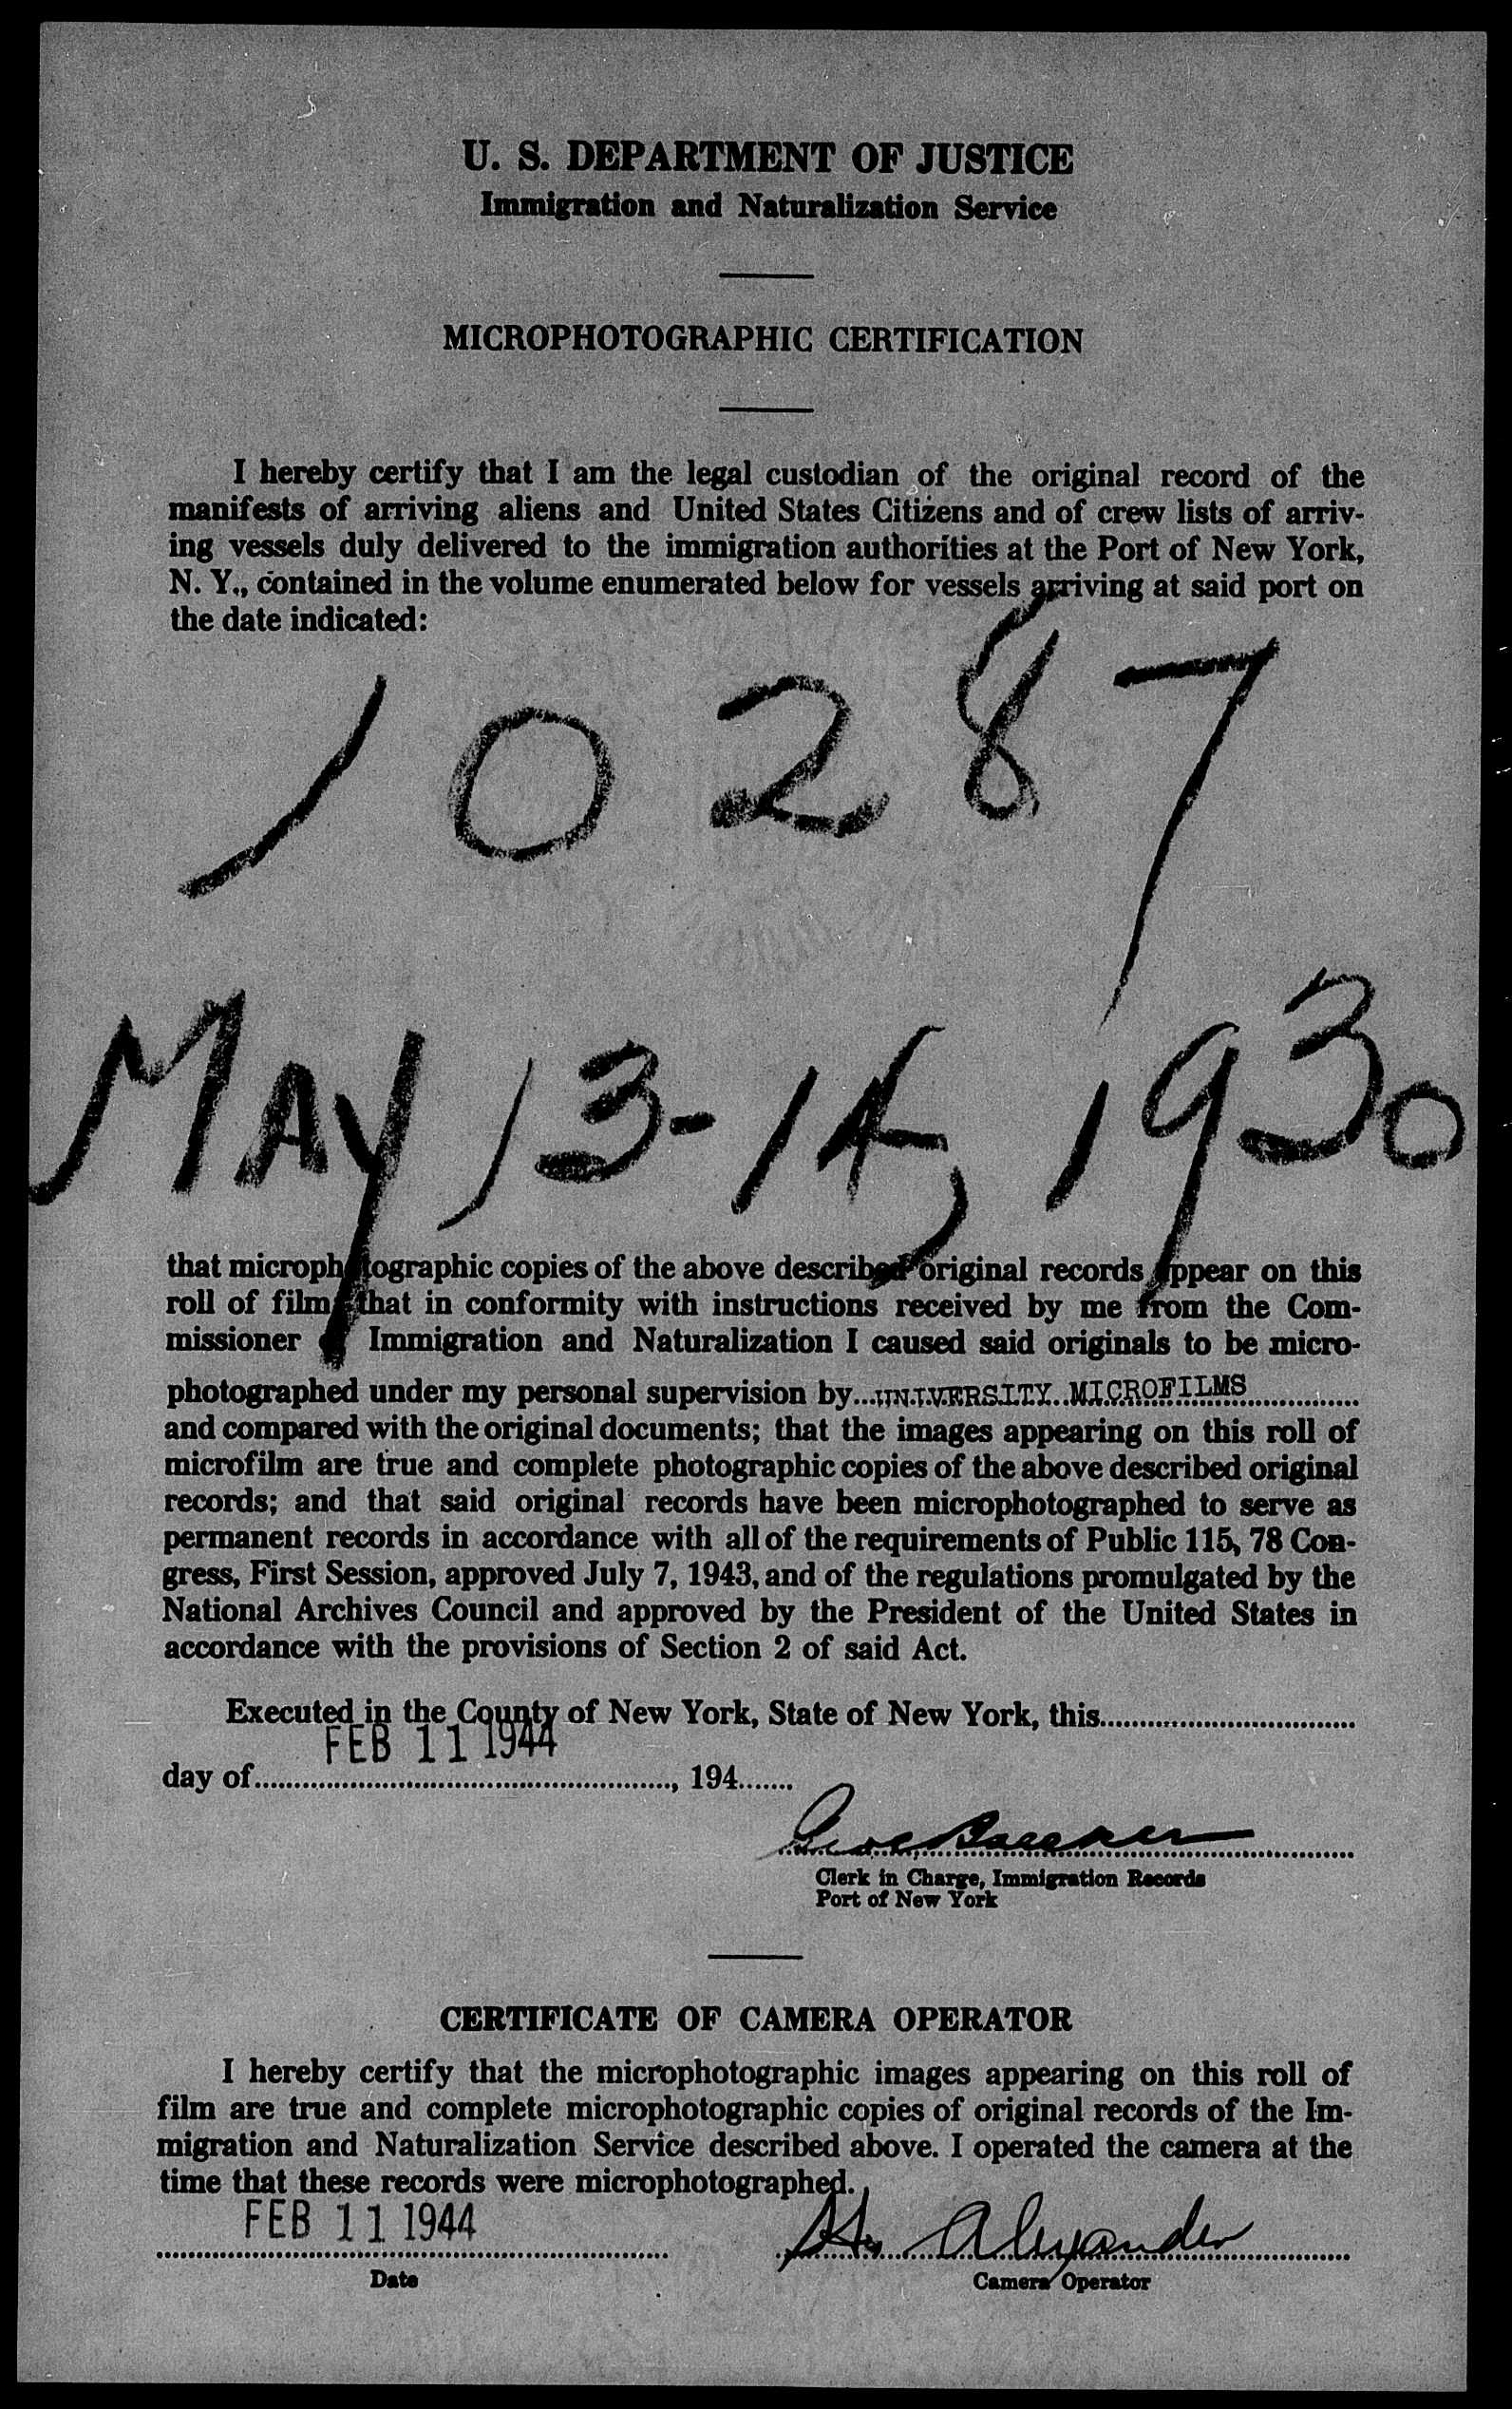 U. S. DEPARTMENT OF JUSTICE
Immigration and Naturalization Service
MICROPHOTOGRAPHIC CERTIFICATION
I hereby certify that I am the legal custodian of the original record of the
manifests of arriving aliens and United States Citizens and of crew lists of arriv-
ing vessels duly delivered to the immigration authorities at the Port of New York,
N. Y., contained in the volume enumerated below for vessels arriving at said port on
the date indicated:
10287
MAY 13-14, 1930
that microphotographic copies of the above described original records appear on this
roll of film; that in conformity with instructions received by me from the Com-
missioner of Immigration and Naturalization I caused said originals to be micro-
photographed under my personal supervision by UNIVERSITY MICROFILMS
and compared with the original documents; that the images appearing on this roll of
microfilm are true and complete photographic copies of the above described original
records; and that said original records have been microphotographed to serve as
permanent records in accordance with all of the requirements of Public 115, 78 Con-
gress, First Session, approved July 7, 1943, and of the regulations promulgated by the
National Archives Council and approved by the President of the United States in
accordance with the provisions of Section 2 of said Act.
Executed in the County of New York, State of New York, this
FEB 11 1944
day of, 194
Clerk in Charge, Immigration Records
Port of New York
CERTIFICATE OF CAMERA OPERATOR
I hereby certify that the microphotographic images appearing on this roll of
film are true and complete microphotographic copies of original records of the Im-
migration and Naturalization Service described above. I operated the camera at the
time that these records were microphotographed.
FEB 11 1944
Alexander
Date
Camera Operator